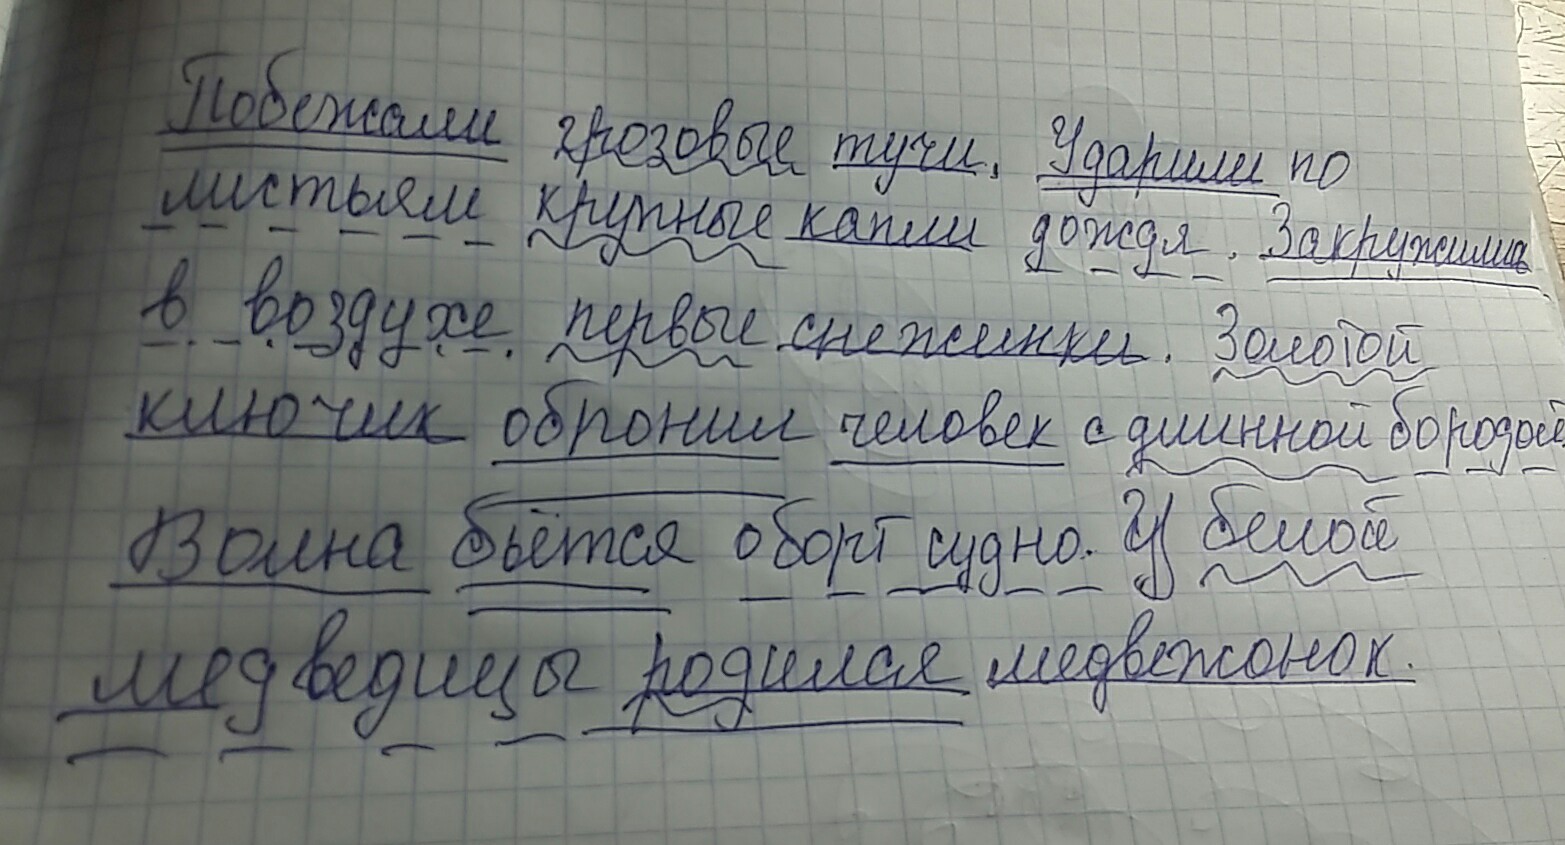 Побежали грозовые тучи. Ударили по
листьям крупные капли дождя. Закружились
в воздухе первые снежинки. Золотой
ключик обронил человек с длинной бородой
Волна бьётся о борт судно. У белой
медведицы родился медвежонок.